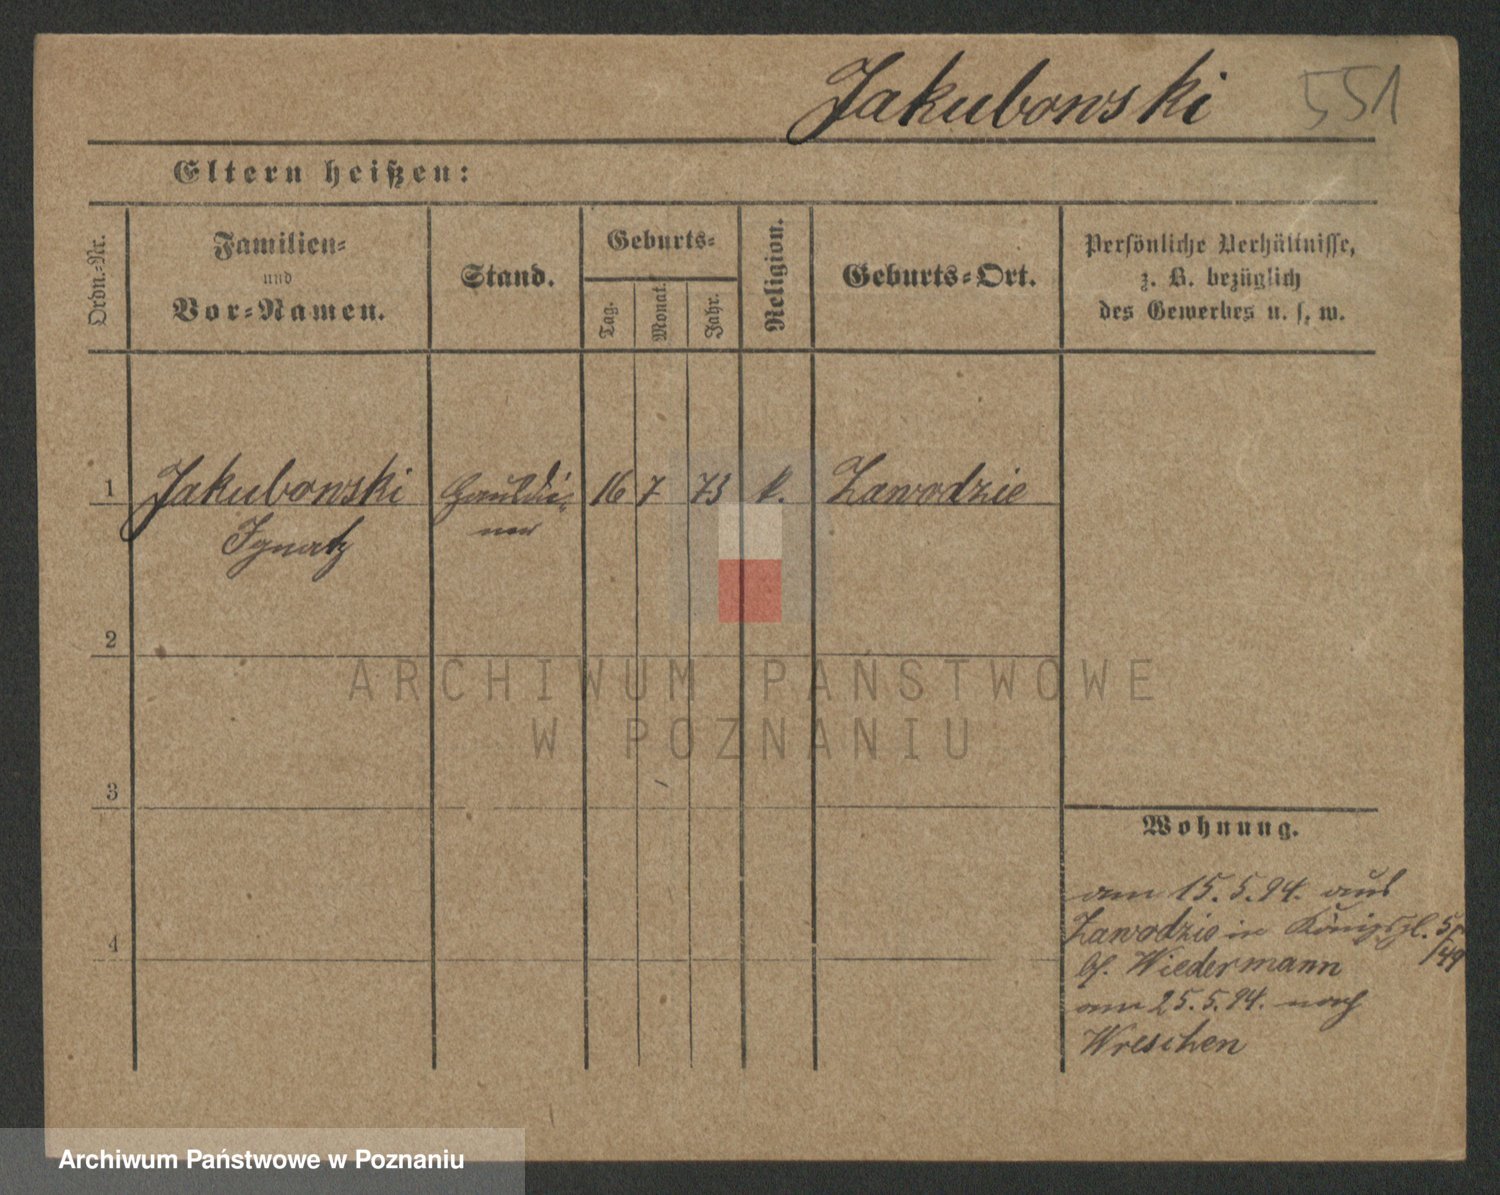 Jakubowski 551
Eltern heißen:
Ordn.-Nr.
Familien-
und
Vor-Namen.
Stand.
Geburts-
Tag.
Monat.
Jahr.
Religion.
Geburts-Ort.
Persönliche Verhältnisse,
z. B. bezüglich
des Gewerbes u. s. w.
1 Jakubowski 16 7 73 k. Zawodzie
Ignatz
2
3
4
ARCHIWUM PAŃSTWOWE
W POZNANIU
Wohnung.
am 15.5.94. aus
Zawodzie in Königspl. 5/
bf. Wiedermann /49
am 25.5.94. nach
Wreschen
Archiwum Państwowe w Poznaniu